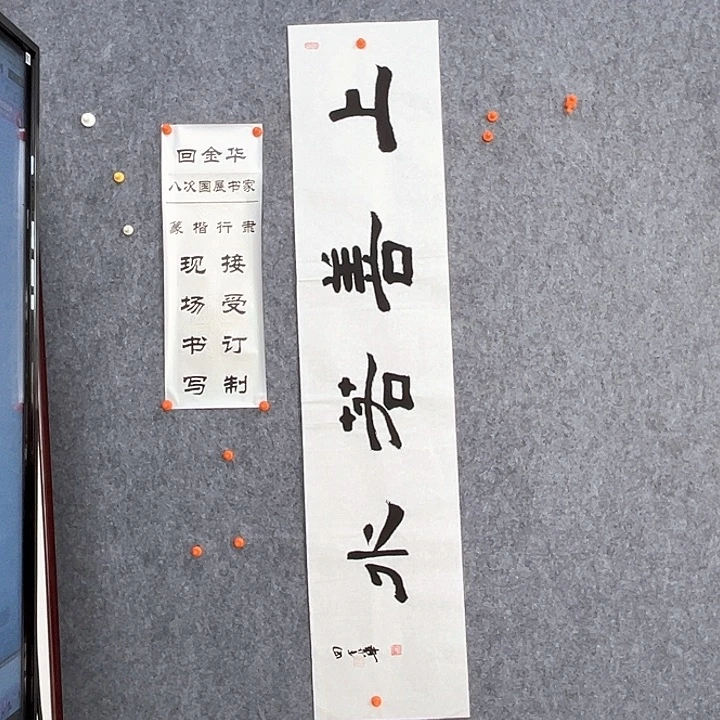 回金华
八次国展书家
篆楷行隶
现场书写
接受订制
上善若水